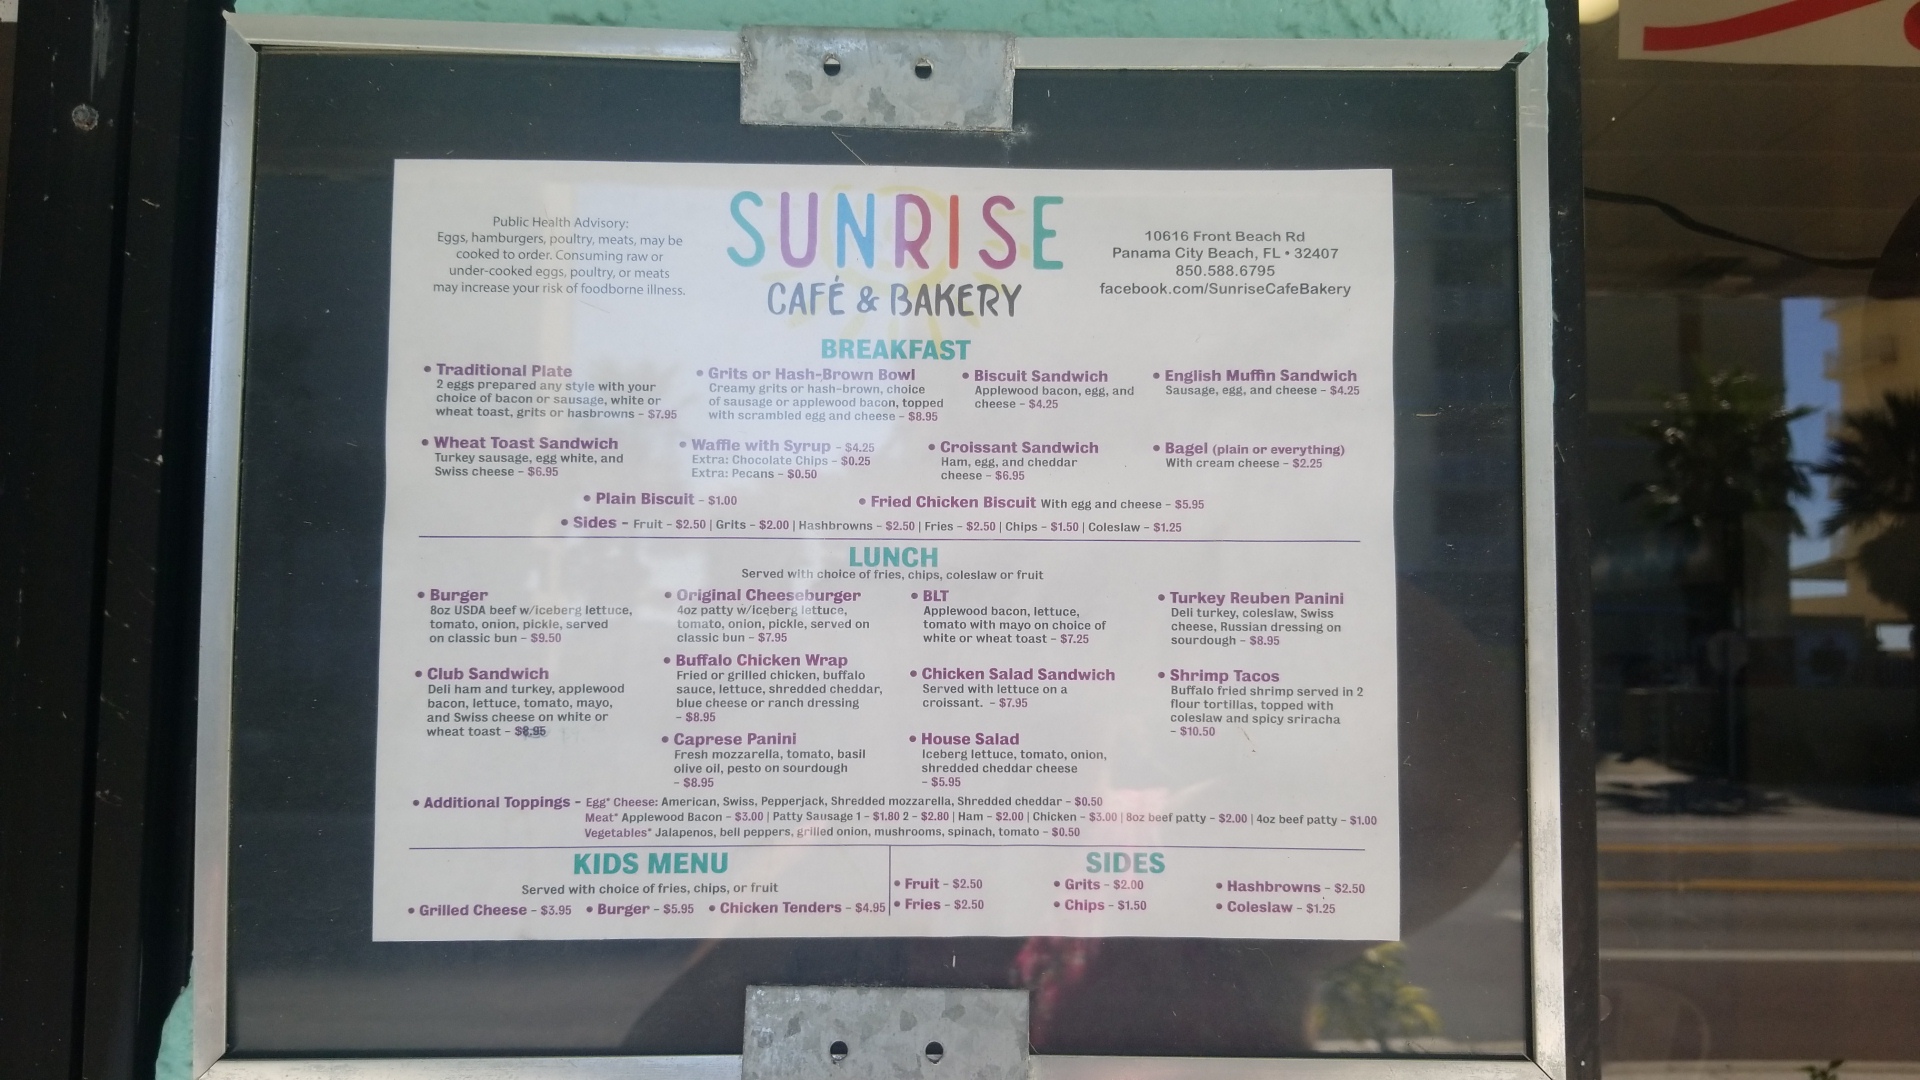 Public Health Advisory:
Eggs, hamburgers, poultry, meats, may be
cooked to order. Consuming raw or
under-cooked eggs, poultry, or meats
may increase your risk of foodborne illness.
SUNRISE
CAFÉ & BAKERY
10616 Front Beach Rd
Panama City Beach, FL • 32407
850.588.6795
facebook.com/SunriseCafeBakery
BREAKFAST
• Traditional Plate
2 eggs prepared any style with your
choice of bacon or sausage, white or
wheat toast, grits or hasbrowns - $7.95
• Grits or Hash-Brown Bowl
Creamy grits or hash-brown, choice
of sausage or applewood bacon, topped
with scrambled egg and cheese - $8.95
• Biscuit Sandwich
Applewood bacon, egg, and
cheese - $4.25
• English Muffin Sandwich
Sausage, egg, and cheese - $4.25
• Wheat Toast Sandwich
Turkey sausage, egg white, and
Swiss cheese - $6.95
• Waffle with Syrup - $4.25
Extra: Chocolate Chips - $0.25
Extra: Pecans - $0.50
• Croissant Sandwich
Ham, egg, and cheddar
cheese - $6.95
• Bagel (plain or everything)
With cream cheese - $2.25
• Plain Biscuit - $1.00
• Fried Chicken Biscuit With egg and cheese - $5.95
• Sides - Fruit - $2.50 | Grits - $2.00 | Hashbrowns - $2.50 | Fries - $2.50 | Chips - $1.50 | Coleslaw - $1.25
LUNCH
Served with choice of fries, chips, coleslaw or fruit
• Burger
8oz USDA beef w/iceberg lettuce,
tomato, onion, pickle, served
on classic bun - $9.50
• Original Cheeseburger
4oz patty w/iceberg lettuce,
tomato, onion, pickle, served on
classic bun - $7.95
• BLT
Applewood bacon, lettuce,
tomato with mayo on choice of
white or wheat toast - $7.25
• Turkey Reuben Panini
Deli turkey, coleslaw, Swiss
cheese, Russian dressing on
sourdough - $8.95
• Club Sandwich
Deli ham and turkey, applewood
bacon, lettuce, tomato, mayo,
and Swiss cheese on white or
wheat toast - $8.95
• Buffalo Chicken Wrap
Fried or grilled chicken, buffalo
sauce, lettuce, shredded cheddar,
blue cheese or ranch dressing
- $8.95
• Chicken Salad Sandwich
Served with lettuce on a
croissant. - $7.95
• Shrimp Tacos
Buffalo fried shrimp served in 2
flour tortillas, topped with
coleslaw and spicy sriracha
- $10.50
• Caprese Panini
Fresh mozzarella, tomato, basil
olive oil, pesto on sourdough
- $8.95
• House Salad
Iceberg lettuce, tomato, onion,
shredded cheddar cheese
- $5.95
• Additional Toppings - Egg* Cheese: American, Swiss, Pepperjack, Shredded mozzarella, Shredded cheddar - $0.50
Meat* Applewood Bacon - $3.00 | Patty Sausage 1 - $1.80 2 - $2.80 | Ham - $2.00 | Chicken - $3.00 | 8oz beef patty - $2.00 | 4oz beef patty - $1.00
Vegetables* Jalapenos, bell peppers, grilled onion, mushrooms, spinach, tomato - $0.50
KIDS MENU
Served with choice of fries, chips, or fruit
• Grilled Cheese - $3.95 • Burger - $5.95 • Chicken Tenders - $4.95
SIDES
• Fruit - $2.50 • Grits - $2.00 • Hashbrowns - $2.50
• Fries - $2.50 • Chips - $1.50 • Coleslaw - $1.25